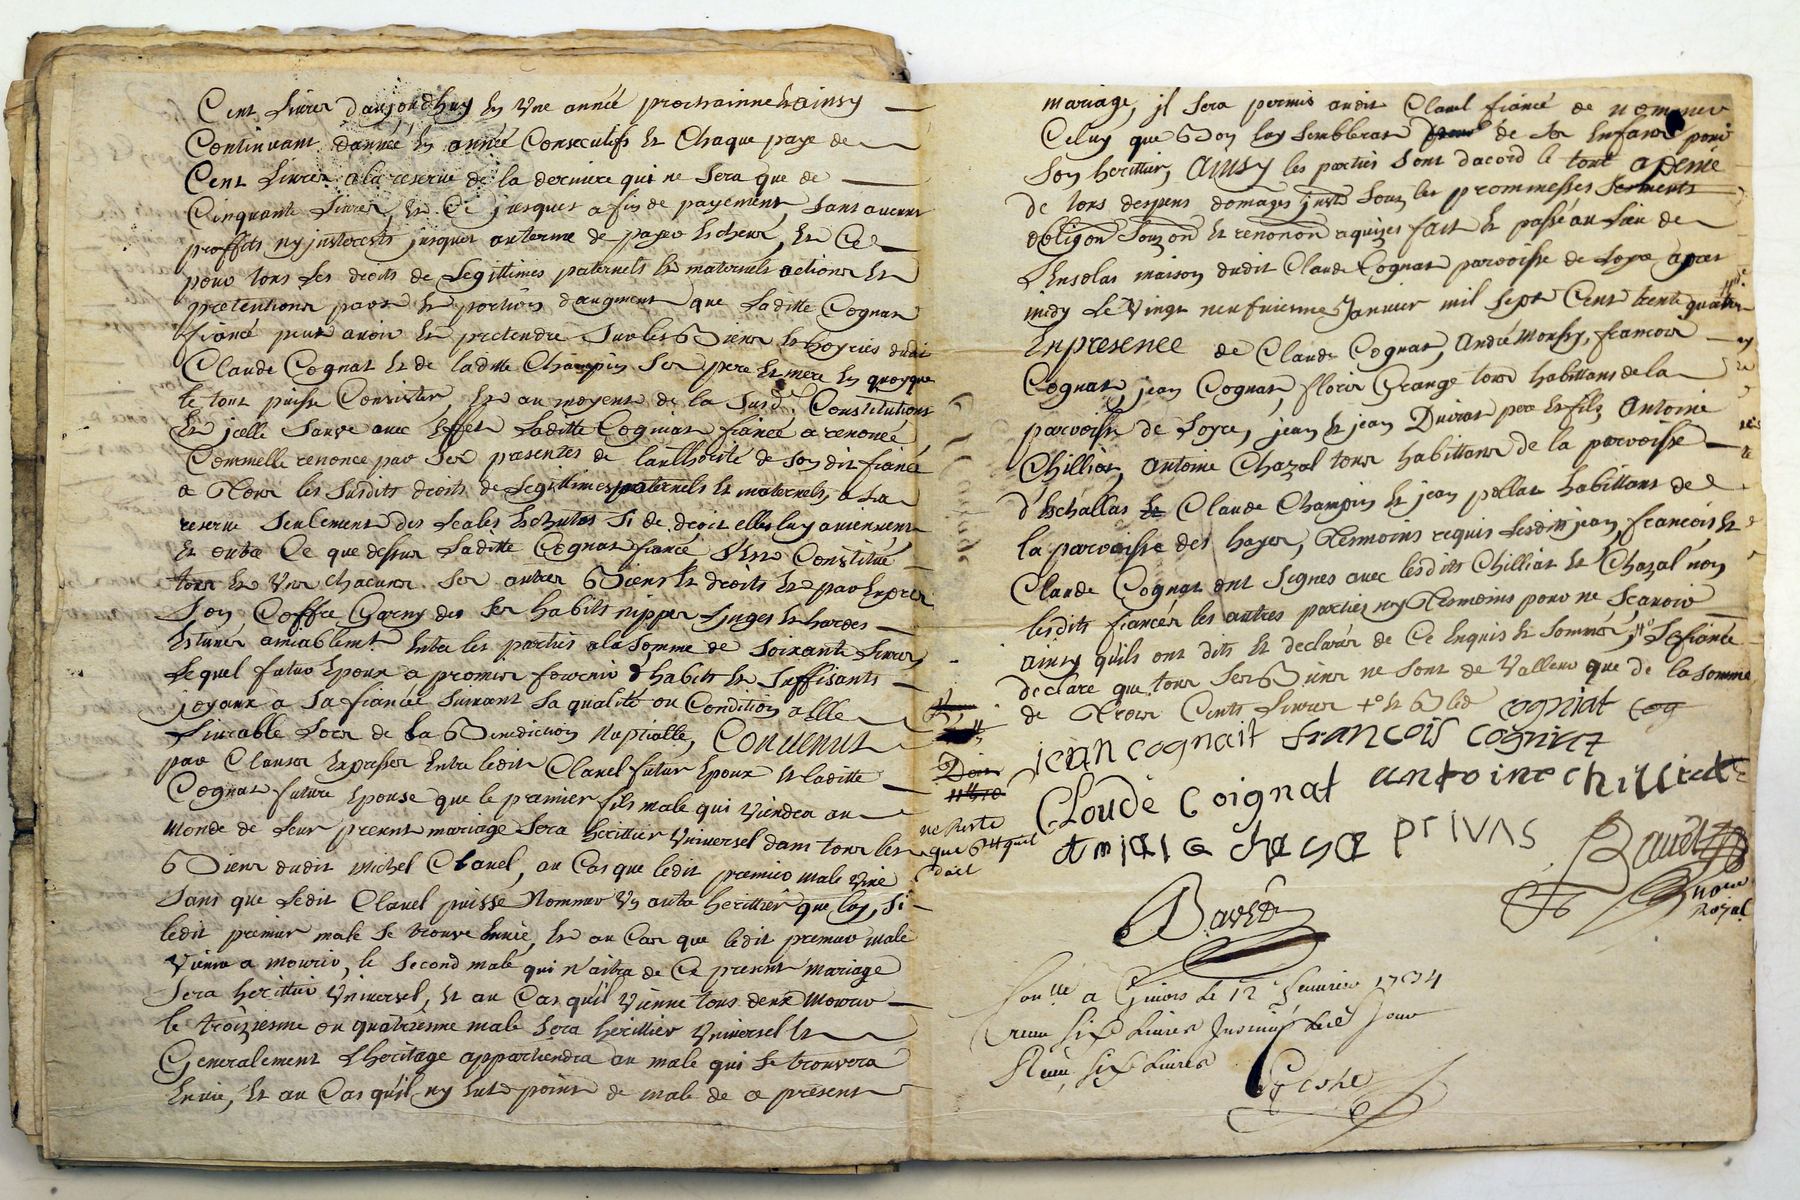 Cent Livres daujourdhuy En Une année prochainne Et ainsy
Continuant dannée En année Consecutifs Et Chaque paye de
Cent Livres ala reserve de la derniere qui ne Sera que de
Cinquante Livres, Et Ce jusques a fin de payement, Sans aucuns
proffits ny jnterests jusques au terme de payer Escheu, Et Ce
pour tous Les droits de Legittimes paternels Et maternels actions Et
pretentions part Et portion daugment que Laditte Cognat
fiancé peut avoir Et pretendre Sur les Biens Et hoyries dudit
Claude Cognat Et de laditte Champin Ses pere Et mere En quoyque
le tout puisse Consister, Et au moyent de la Susd.e Constitution
Et jcelle Sauve avec Effet Laditte Cognat fiancée a renoncé
Commelle renonce par Ses presentes de lauthorité de Son dit fiancé
a Tous les Susdits droits de Legittimes paternels Et maternels, a La
reserve Seulement des Leales Echutes Si de droit elles luy aviennent
Et outre Ce que dessus Laditte Cognat fiancée S'Est Constitué
tous Et Uns chacuns Ses autres Biens Et droits Et par Exprès
Son Coffre Garny des Ses habits nippes Linges Et hardes
Estimés amiablemt Entre les parties ala Somme de Soixante Livres
Lequel futur Epoux a promis fournir d'habits Et Suffisants
joyaux à Sa fiancée Suivant Sa qualité ou Condition a Elle
Livrable Lors de la Benediction Nuptialle, Convenus
par Clauses Expresses Entre ledit Clavel futur Epoux Et laditte
Cognat future Epouse que le premier fils male qui Viendra au
Monde de Leur present mariage Sera herittier Universel dans tous les
Biens dudit Michel Clavel, au Cas que ledit premier male Vive
Sans que Ledit Clavel puisse Nommer Un autre herittier que luy, Si
ledit premier male Se trouve Envie, Et au Cas que ledit premier male
Vienne a mourir, le Second male qui n'aitra de Ce present mariage
Sera herittier Universel, Et au Cas qu'il Vienne tous deux Mourir
le troizieme ou quatrieme male Sera herittier Universel Et
Generalement Lheritage appartiendra au male qui Se trouvera
Envie, Et au Cas qu'il ny Eut point de male de ce present
ne Reste
que
mariage, jl Sera permis audit Clavel fiancé de nommer
Celuy que Bon luy Semblerat de Ses Enfans pour
Son herittier, Ainsy les parties Sont dacord le tout a peine
de tous despens domages jnts Sous les prommesses Serments
obligon Soumon Et renonon aquizes fait Et passé au Lieu de
Lensolas maison dudit Claude Cognat parroisse de Loyre après
midy Le Vingt neufvieme Janvier mil Sept Cent trente quatre
En presence de Claude Cognat, André Monssy, francois
Cognat, jean Cognat, floris Grange tous habittans de la
parroisse de Loyre, jean Et jean Duivat pere Et fils, Antoine
Chilliat, Antoine Chazal tous habittans de la parroisse
d'Echallas Claude Champin Et jean pellat habittans de
la parroisse des hayes, Tesmoins requis Lesdits jean, francois Et
Claude Cognat ont Signés avec lesdits Chilliat Et Chazal non
lesdits fiancés les autres parties ny Tesmoins pour ne Scavoir
ainsy quils ont dits Et declarés de Ce Enquis Et Sommés, Le fiancé
declare que tous Ses Biens ne Sont de Valleur que de la Somme
de Trois Cents Livres cogniat cog
jean cognait francois cognirt
Cloude Coignat antoine chilliet
privas
Bavet
Nore
Royal
Controllé a Givors Le 12 fevrier 1734
receu Six Livres jnsinué Led Jour
Receu Six Livres